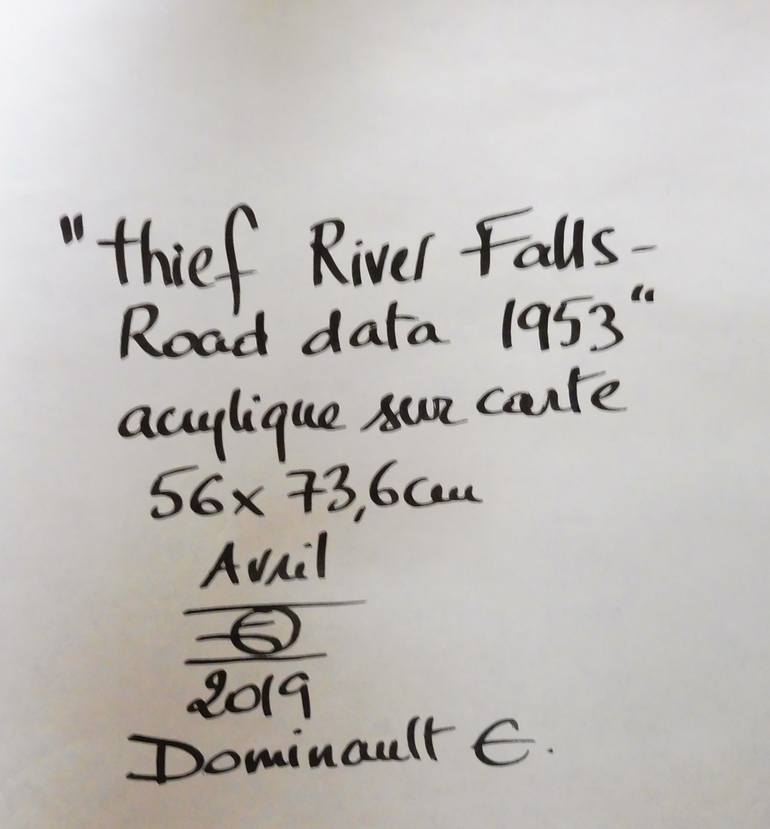 "thief River Falls-
Road data 1953"
acrylique sur carte
56x 73,6cm
Avril
E
2019
Dominault E.